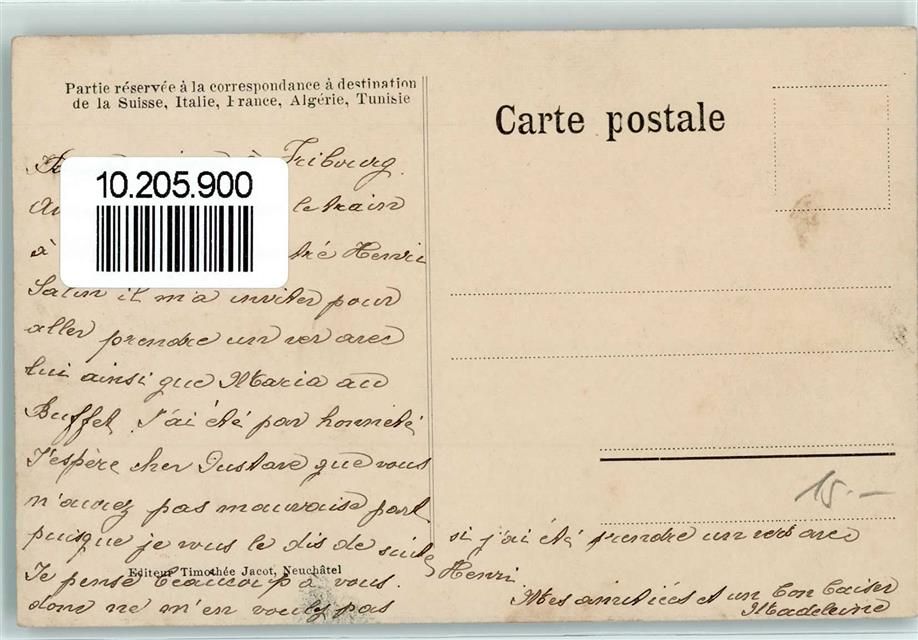 Partie réservée à la correspondance à destination
de la Suisse, Italie, France, Algérie, Tunisie
Carte postale
10.205.900
à Fribourg.
le train
à tré Henri
Salin il m'a inviter pour
aller prendre un ver avec
lui ainsi que Maria au
Buffet. J'ai été par honnêté
J'espère cher Gustave que vous
n'aurez pas mauvaise part
puisque je vous le dis de suite
Editeur Timothée Jacot, Neuchâtel
Je pense beaucoup à vous.
donc ne m'en voulez pas
15.-
si j'ai été prendre un ver avec
Henri.
Mes amitiés et un bon baiser
Madeleine